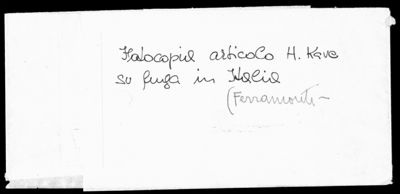 Fotocopia articolo H. Kave
su fuga in Italia
(Ferramonti-